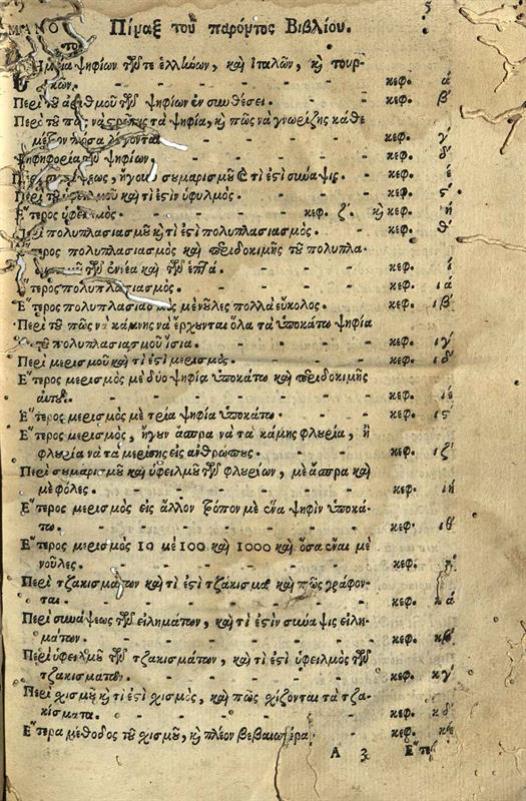 Πίναξ τοῦ παρόντος Βιβλίου.
ψηφίων τῶν τε ἑλλήνων, καὶ Ἰταλῶν, κὶ τουρ-
κῶν. κεφ. ά
Περὶ τοῦ ἀριθμοῦ τῶν ψηφίων ἐν συνθέσει. κεφ. β΄
Περὶ τοῦ τὰ ψηφία, κὶ πῶς νὰ γνωρίζῃς κάθε
λέγονται κεφ. γ΄
ψηφίων. κεφ. δ΄
ἤγουν σουμαρισμοῦ κὶ τί ἐστὶ σύναψις. κεφ. έ
Περὶ καὶ τί ἐστὶν ὑφειλμός. κεφ. ς΄
Ἕτερος κεφ. ζ΄. κὶ κεφ. ή
Περὶ πολυπλασιασμοῦ κὶ τί ἐστὶ πολυπλασιασμός. κεφ. θ΄
πολυπλασιασμὸς καὶ περὶ δοκιμῆς τοῦ πολυπλα-
τῶν ἐννέα καὶ τῶν ἑπτά. κεφ. ί
Ἕτερος πολυπλασιασμός. κεφ. ιά
Ἕτερος πολυπλασιασμὸς μὲ νοῦλες πολλὰ εὔκολος. κεφ. ιβ΄
Περὶ τοῦ πῶς νὰ κάμνῃς νὰ ἔρχωνται ὅλα τὰ ὑποκάτω ψηφία
τοῦ πολυπλασιασμοῦ ἴσια. κεφ. ιγ΄
Περὶ μερισμοῦ καὶ τί ἐστὶ μερισμός. κεφ. ιδ΄
Ἕτερος μερισμὸς μὲ δύο ψηφία ὑποκάτω καὶ περὶ δοκιμῆς
αὐτοῦ. κεφ. ιέ
Ἕτερος μερισμὸς μὲ τρία ψηφία ὑποκάτω. κεφ. ις΄
Ἕτερος μερισμὸς, ἤγουν ἄσπρα νὰ τὰ κάμῃς φλωρία, ἢ
φλωρία νὰ τὰ μερίσῃς εἰς ἀνθρώπους. κεφ. ιζ΄
Περὶ σουμαρισμοῦ καὶ ὑφειλμοῦ τῶν φλωρίων, μὲ ἄσπρα καὶ
μὲ φόλες. κεφ. ιή
Ἕτερος μερισμὸς εἰς ἄλλον τρόπον μὲ ἕνα ψηφὶν ὑποκά-
τω. κεφ. ιθ
Ἕτερος μερισμὸς 10 μὲ 100 καὶ 1000 καὶ ὅσα εἶναι μὲ
νοῦλες. κεφ. κ΄
Περὶ τζακισμάτων καὶ τί ἐστὶ τζάκισμα καὶ πῶς γράφον-
ται. κεφ. κά
Περὶ συνάψεως τῶν εἰλημάτων, καὶ τί ἐστὶν σύναψις εἰλη-
μάτων. κεφ. κβ΄
Περὶ ὑφειλμοῦ τῶν τζακισμάτων, καὶ τί ἐστὶ ὑφειλμὸς τῶν
τζακισμάτων. κεφ. κγ΄
Περὶ σχισμοῦ κὶ τί ἐστὶ σχισμὸς, καὶ πῶς σχίζονται τὰ τζα-
κίσματα. κεφ. κδ΄
Ἕτερα μέθοδος τοῦ σχισμοῦ, κὶ πλέον βεβαιωτέρα. κεφ. κέ
A 3 Ἕτε